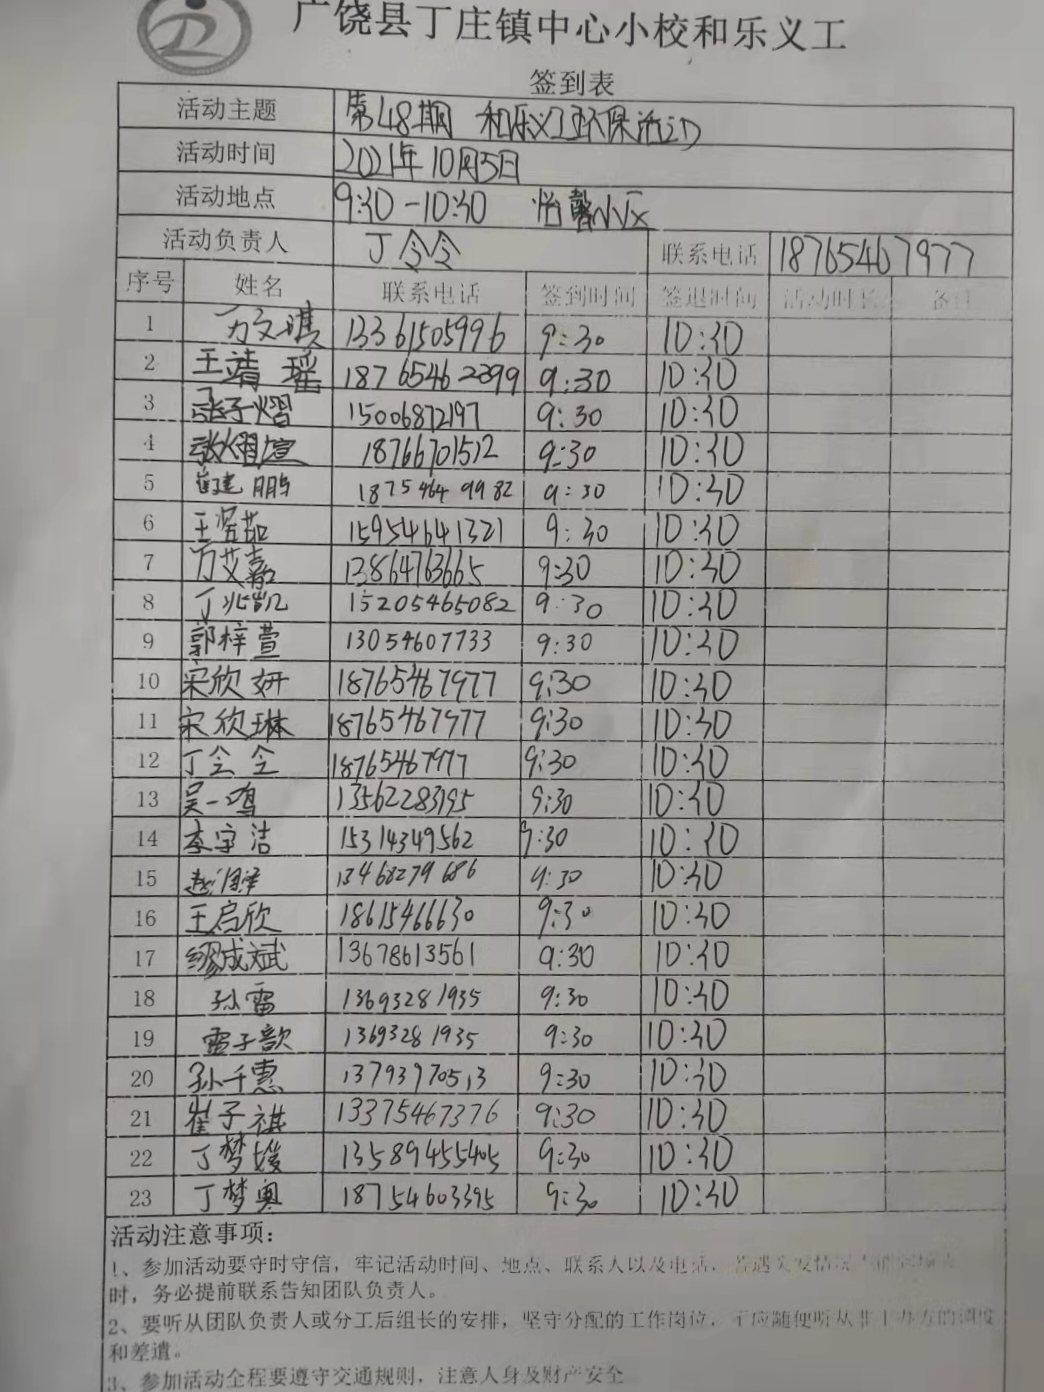 广饶县丁庄镇中心小校和乐义工
签到表
活动主题 第48期 和乐义工环保活动
活动时间 2021年10月5日
活动地点 9:30-10:30 怡馨小区
活动负责人 丁令令 联系电话 18765467977
序号 姓名 联系电话 签到时间 签退时间 活动时长 备注
1 万文琪 13361505996 9:30 10:30
2 王靖瑶 18765462899 9:30 10:30
3 张子熠 15006872197 9:30 10:30
4 张熠煊 18766701512 9:30 10:30
5 崔建鹏 18754649982 9:30 10:30
6 王茹 15954641321 9:30 10:30
7 万艾嘉 13864763665 9:30 10:30
8 丁兆凯 15205465082 9:30 10:30
9 郭梓萱 13054607733 9:30 10:30
10 宋欣妍 18765467977 9:30 10:30
11 宋欣琳 18765467977 9:30 10:30
12 丁令令 18765467977 9:30 10:30
13 吴一鸣 13562283195 9:30 10:30
14 李宇洁 15314349562 9:30 10:30
15 赵 13468279686 9:30 10:30
16 王启欣 18615466630 9:30 10:30
17 缪成斌 13678613561 9:30 10:30
18 孙雷 13693281935 9:30 10:30
19 雷子歆 13693281935 9:30 10:30
20 孙千惠 13793970513 9:30 10:30
21 崔子祺 13375467376 9:30 10:30
22 丁梦媛 13589455405 9:30 10:30
23 丁梦奥 18754603395 9:30 10:30
活动注意事项：
1、参加活动要守时守信，牢记活动时间、地点、联系人以及电话，若遇突发情况
时，务必提前联系告知团队负责人。
2、要听从团队负责人或分工后组长的安排，坚守分配的工作岗位，不应随便听从非主办方的调度
和差遣。
3、参加活动全程要遵守交通规则，注意人身及财产安全